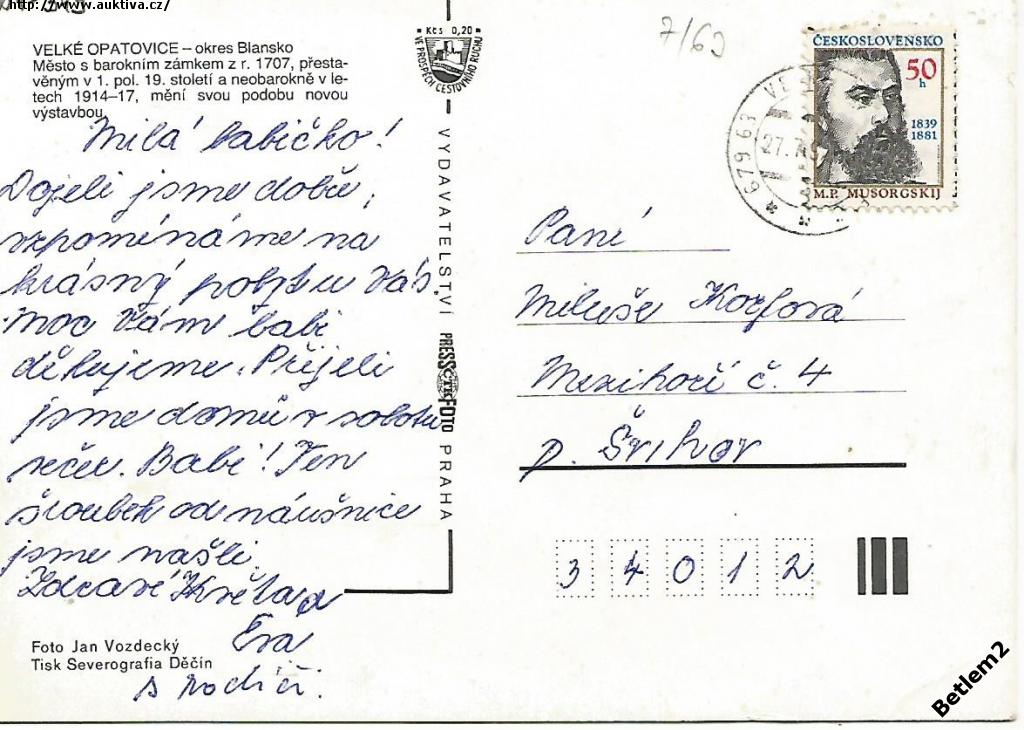 http://www.auktiva.cz/
VELKÉ OPATOVICE – okres Blansko
Město s barokním zámkem z r. 1707, přesta-
věným v 1. pol. 19. století a neobarokně v le-
tech 1914–17, mění svou podobu novou
výstavbou
Milá babičko!
Dojeli jsme dobře,
vzpomínáme na
krásný pobyt u Vás.
Moc Vám babi
děkujeme. Přijeli
jsme domů v sobotu
večer. Babi! Ten
šroubek od náušnice
jsme našli.
Zdraví Květa a
Eva
s rodiči.
Foto Jan Vozdecký
Tisk Severografia Děčín
Kčs 0,20
VE PROSPĚCH CESTOVNÍHO RUCHU
VYDAVATELSTVÍ PRESSFOTO PRAHA
ČTK
7/63
ČESKOSLOVENSKO
50
h
1839
1881
M.P. MUSORGSKIJ
679 63 VE
27.7
Paní
Miluše Korfová
Mezihoří č. 4
p. Švihov
3 4 0 1 2
Betlem2